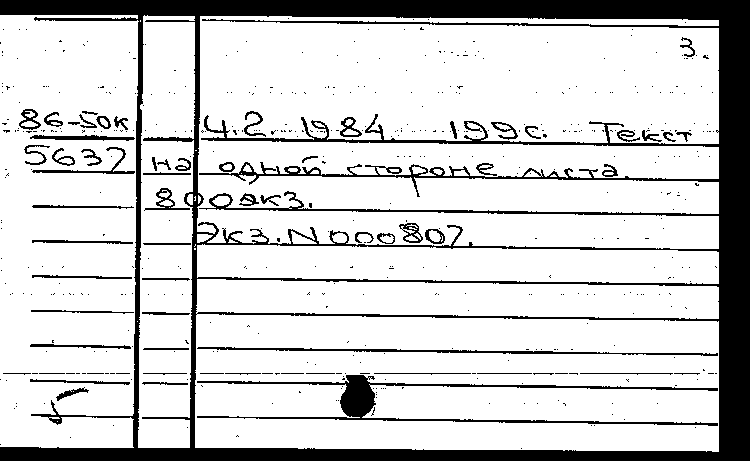 3.
86-50к Ч.2. 1984 199с. Текст
5637 на одной стороне листа.
800экз.
Экз.N000807.
5